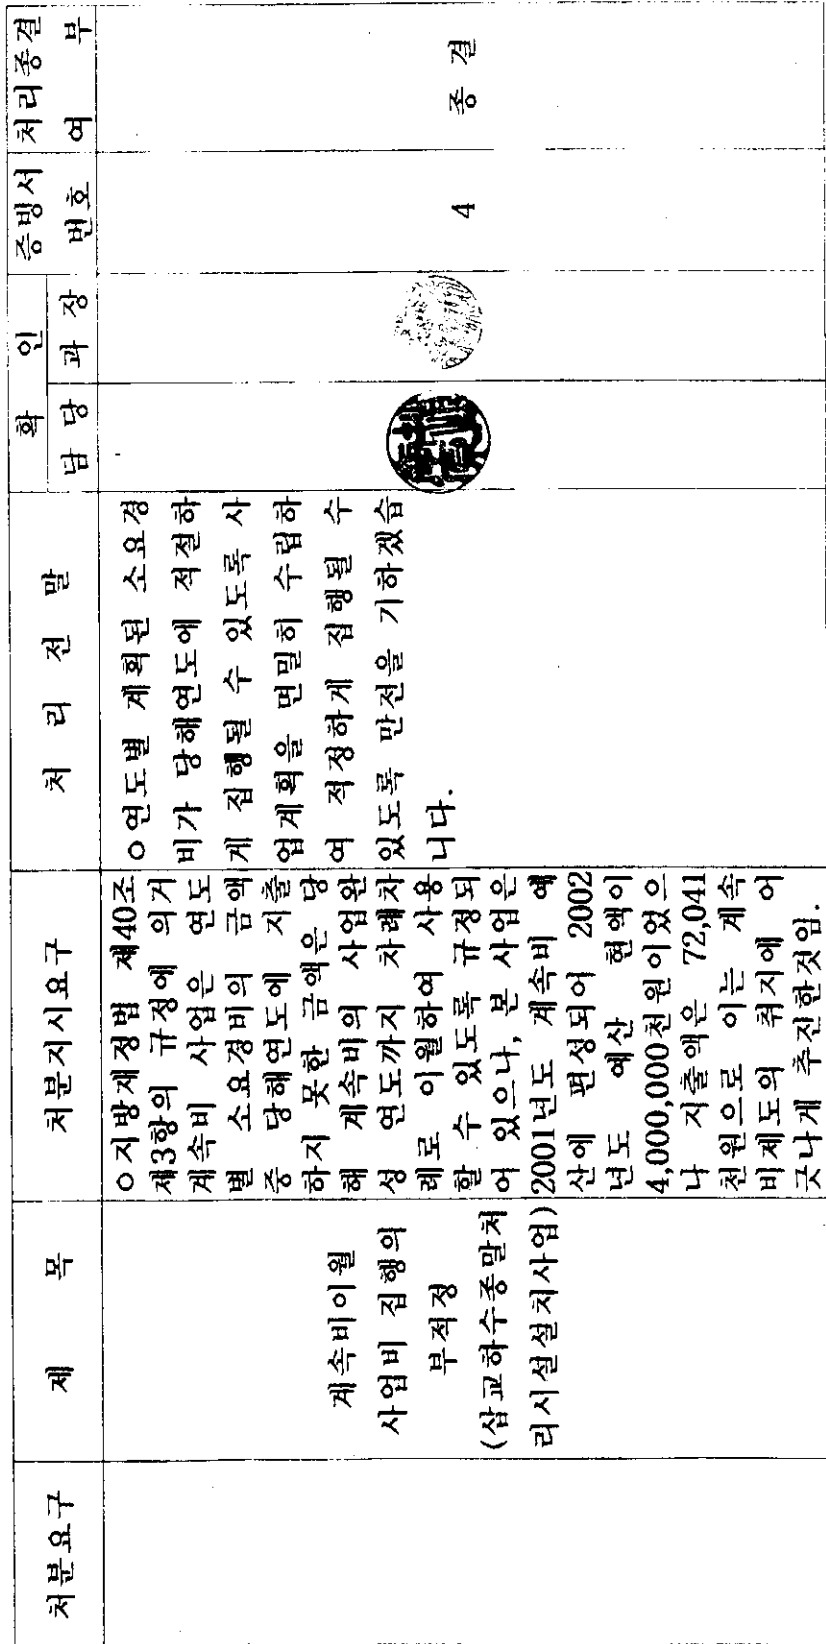 처분요구
제 목
처분지시요구
처 리 전 말
확 인
담 당
과 장
증빙서
번호
처리종결
여 부
계속비이월
사업비 집행의
부적정
(삽교하수종말처
리시설설치사업)
ㅇ지방재정법 제40조
제3항의 규정에 의거
계속비 사업은 연도
별 소요경비의 금액
중 당해연도에 지출
하지 못한 금액은 당
해 계속비의 사업완
성 연도까지 차례차
례로 이월하여 사용
할 수 있도록 규정되
어 있으나, 본 사업은
2001년도 계속비 예
산에 편성되어 2002
년도 예산 현액이
4,000,000천원이었으
나 지출액은 72,041
천원으로 이는 계속
비제도의 취지에 어
긋나게 추진한것임.
ㅇ연도별 계획된 소요경
비가 당해연도에 적절하
게 집행될 수 있도록 사
업계획을 면밀히 수립하
여 적정하게 집행될 수
있도록 만전을 기하겠습
니다.
4
종 결